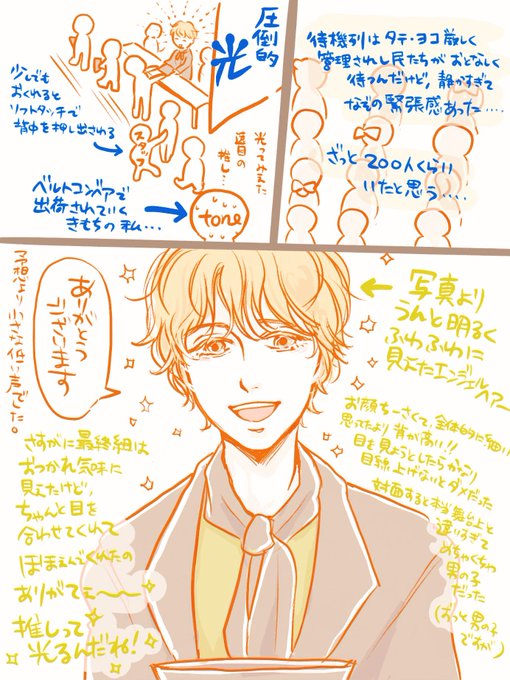 待機列はタテ・ヨコ厳しく
管理されし民たちがおとなしく
待つんだけど、静かすぎて
なぞの緊張感あった…．
ざっと200人くらい
いたと思う….
圧倒的
光
少しでも
おくれると
ソフトタッチで
背中を押し出される
スタッフ
光ってみえた
盲目の
推し…
ベルトコンベアで
出荷されていく
きもちの私…
tone
写真より
うんと明るく
ふわふわに
見えたエンジェルヘアー
ありがとう
ございます
予想より小さな低い声でした。
お顔ちーさくて、全体的に細い
思ってたより背が高い!!
目を見ようとしたらがっつり
目線上げないとダメだった
対面すると本当舞台上と
違いすぎて
めちゃくちゃ
男の子
だった
(ずっと男の子
ですが)
さすがに最終組は
おつかれ気味に
見えたけど、
ちゃんと目を
合わせてくれて
ほほえんでくれたの
ありがてぇ〜〜
推しって
光るんだね!